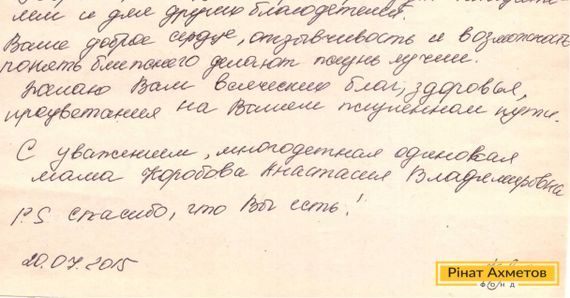 лем и для других благодетелей.
Ваше доброе сердце, отзывчивость и возможность
понять ближнего делают жизнь лучше.
Желаю Вам всяческих благ, здоровья,
процветания на Вашем жизненном пути.
С уважением, многодетная одинокая
мама Коробова Анастасия Владимировна
P.S спасибо, что Вы есть!
20.07.2015
Рінат Ахметов
Фонд